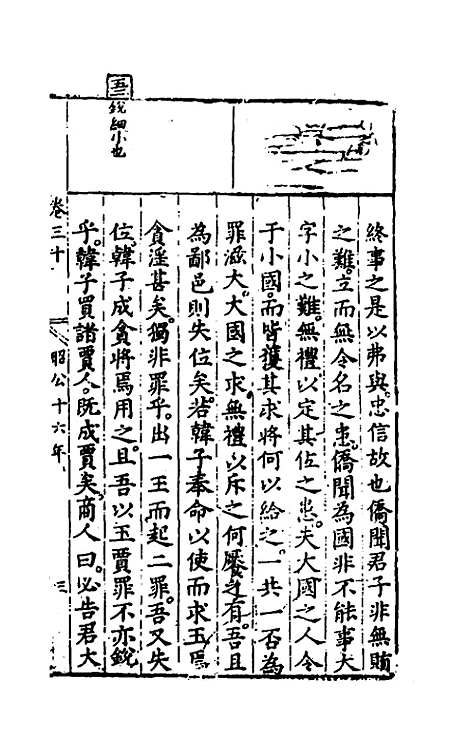 終事之是以弗與忠信故也僑聞君子非無賄
之難立而無令名之患僑聞為國非不能事大
字小之難無禮以定其位之患夫大國之人令
于小國而皆獲其求將何以給之一共一否為
罪滋大大國之求無禮以斥之何饜之有吾且
為鄙邑則失位矣若韓子奉命以使而求玉焉
貪淫甚矣獨非罪乎出一玉而起二罪吾又失
位韓子成貪將焉用之且吾以玉賈罪不亦銳
乎韓子買諸賈人既成賈矣商人曰必告君大
卷三十 昭公十六年 三
五三
銳細小也